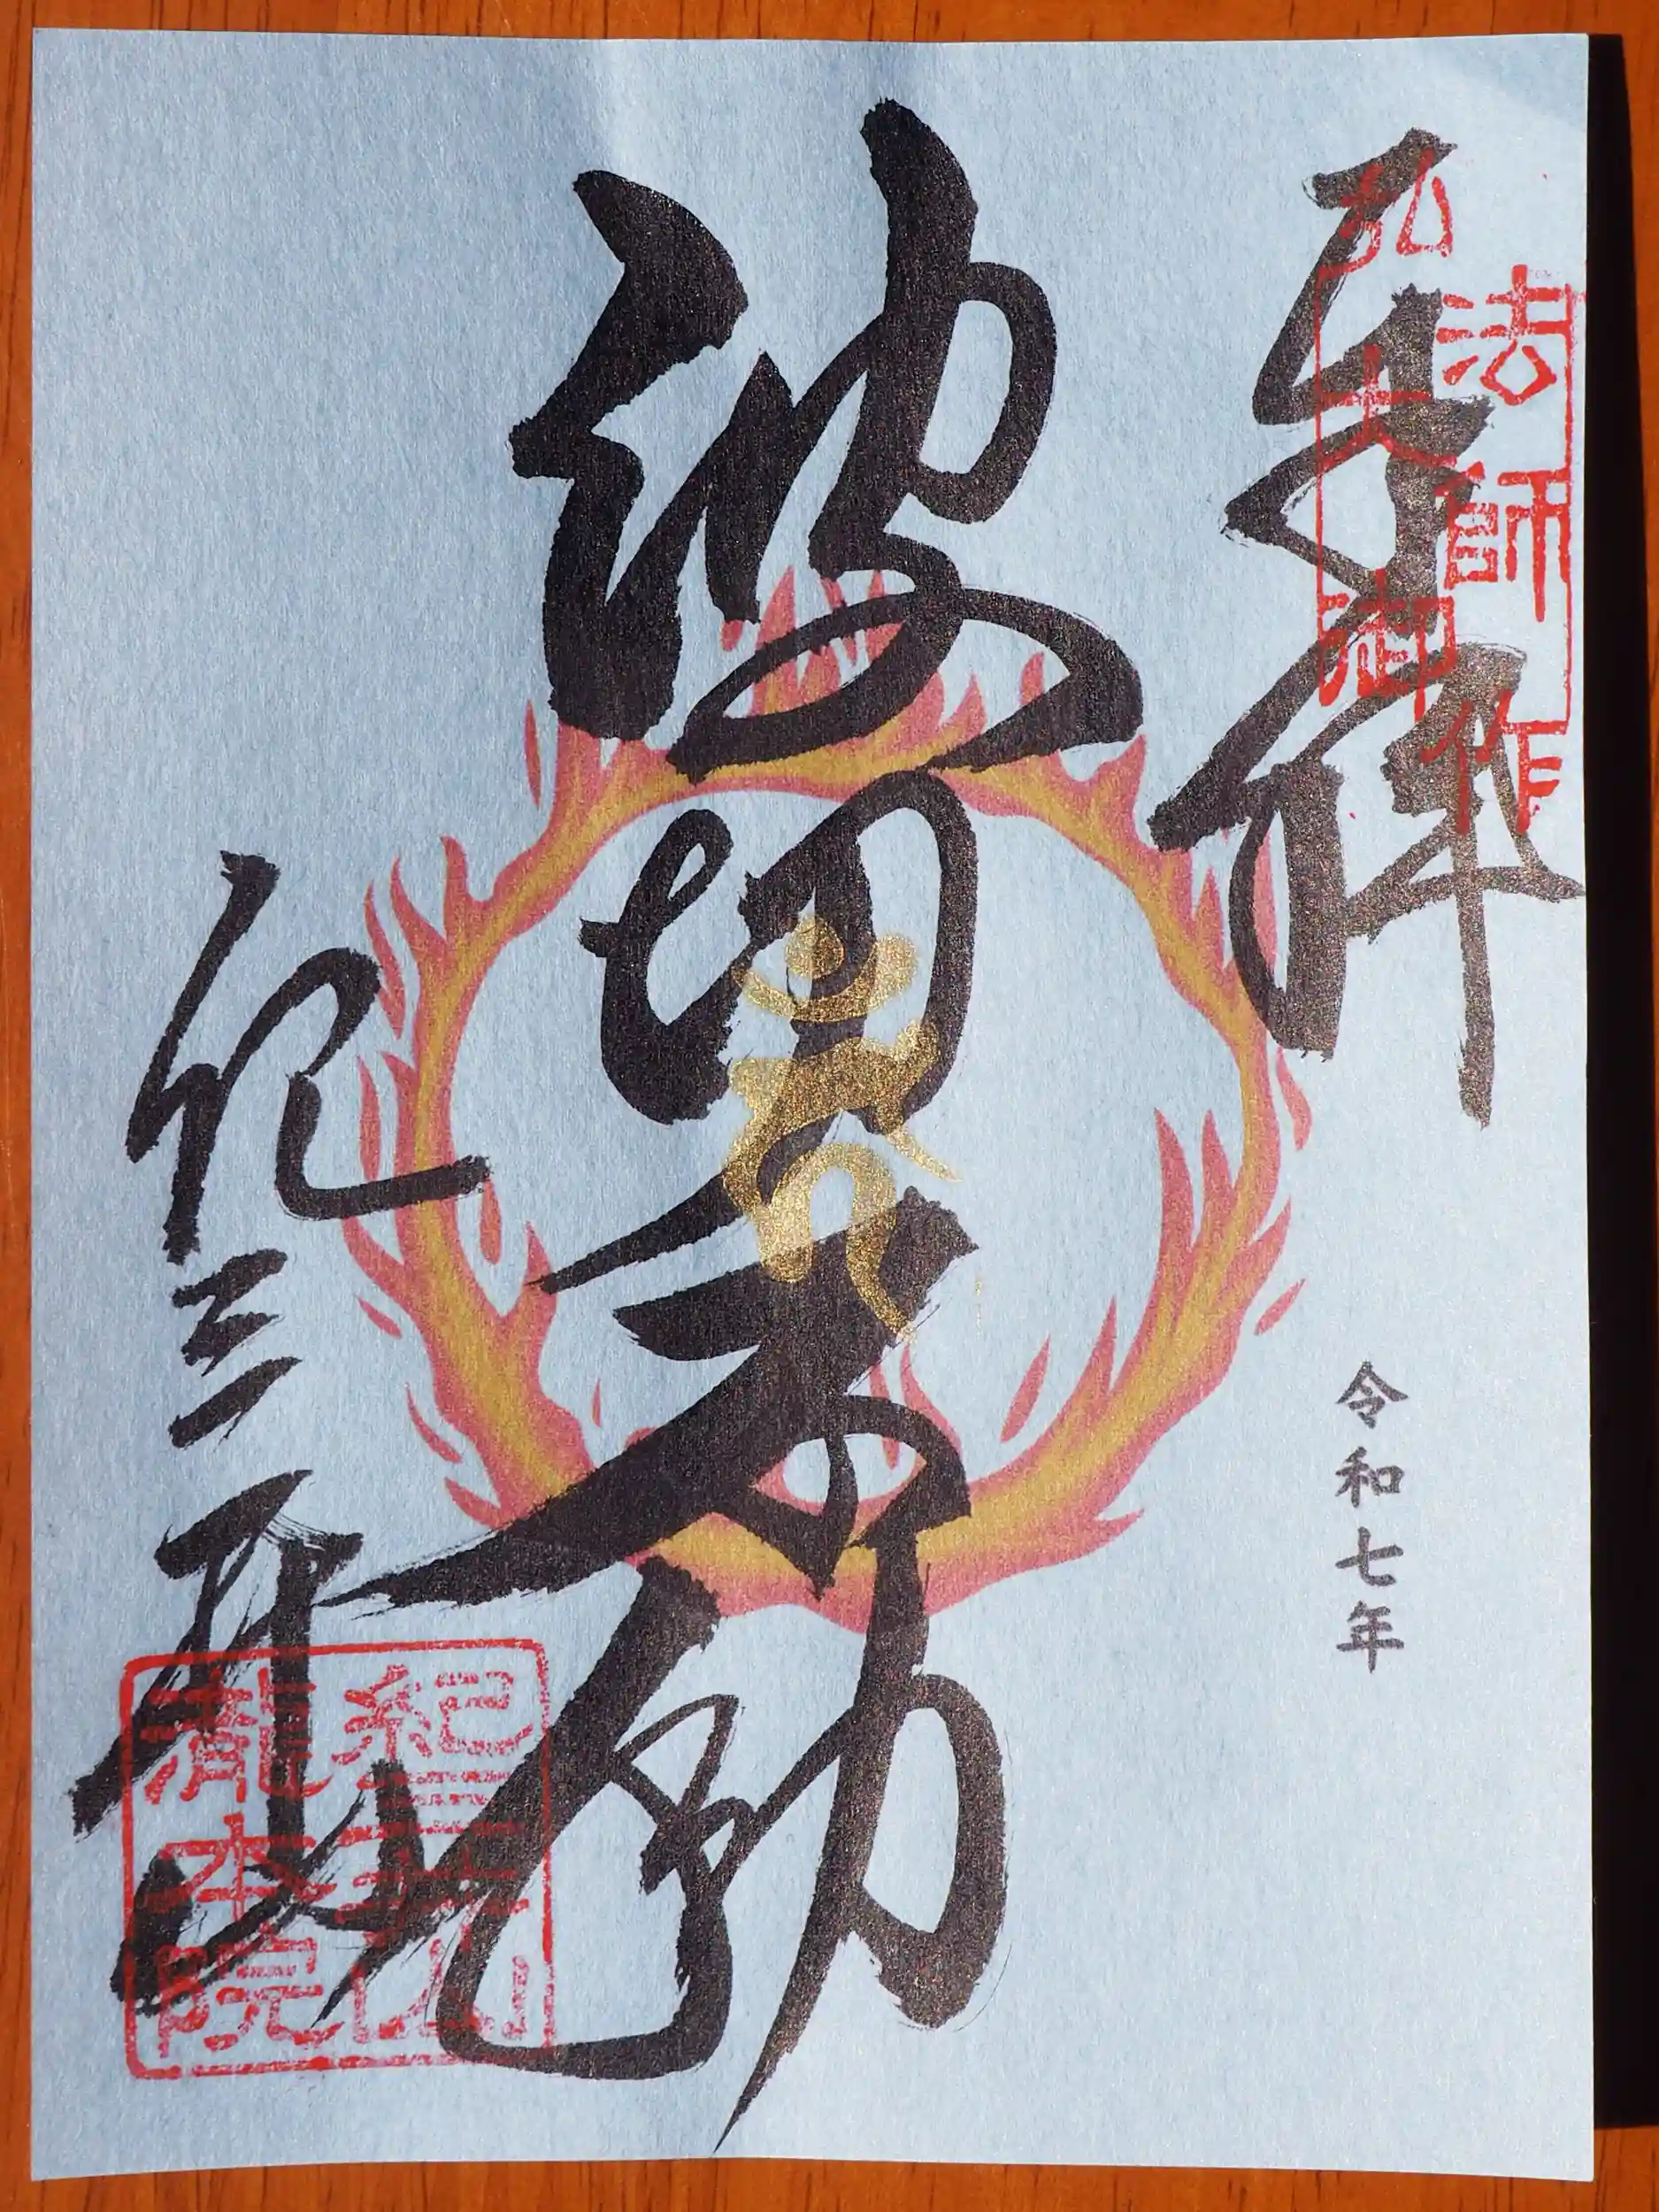 奉拝
弘法大師御作
令和七年
波切不動
紀三井山
紀三井山
瀧本院